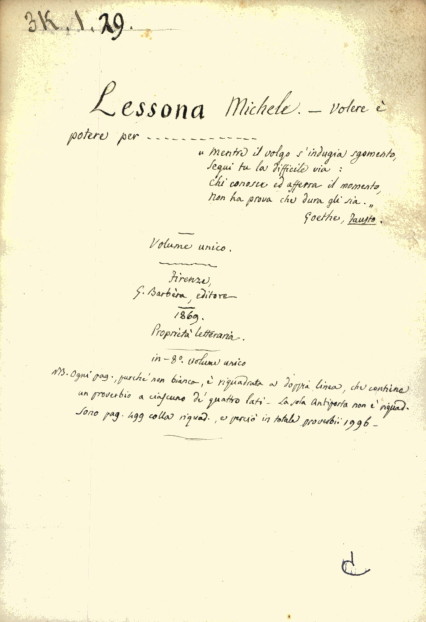 3K.1.29.
Lessona Michele. — Volere è
potere per - - - - - - - - - - - - -
" Mentre il volgo s'indugia sgomento,
Segui tu la difficile via :
Chi conosce ed afferra il momento,
Non ha prova che dura gli sia. "
Goethe, Fausto.
Volume unico.
Firenze,
G. Barbèra, editore
1869.
Proprietà letteraria.
in-8º. volume unico
NB. Ogni pag., purché non bianca, è riquadrata a doppia linea, che contiene
un proverbio a ciascuno de' quattro lati - La sola Antiporta non è riquad.
Sono pag. 499 colla riquad., e perciò in totale proverbii 1996 -